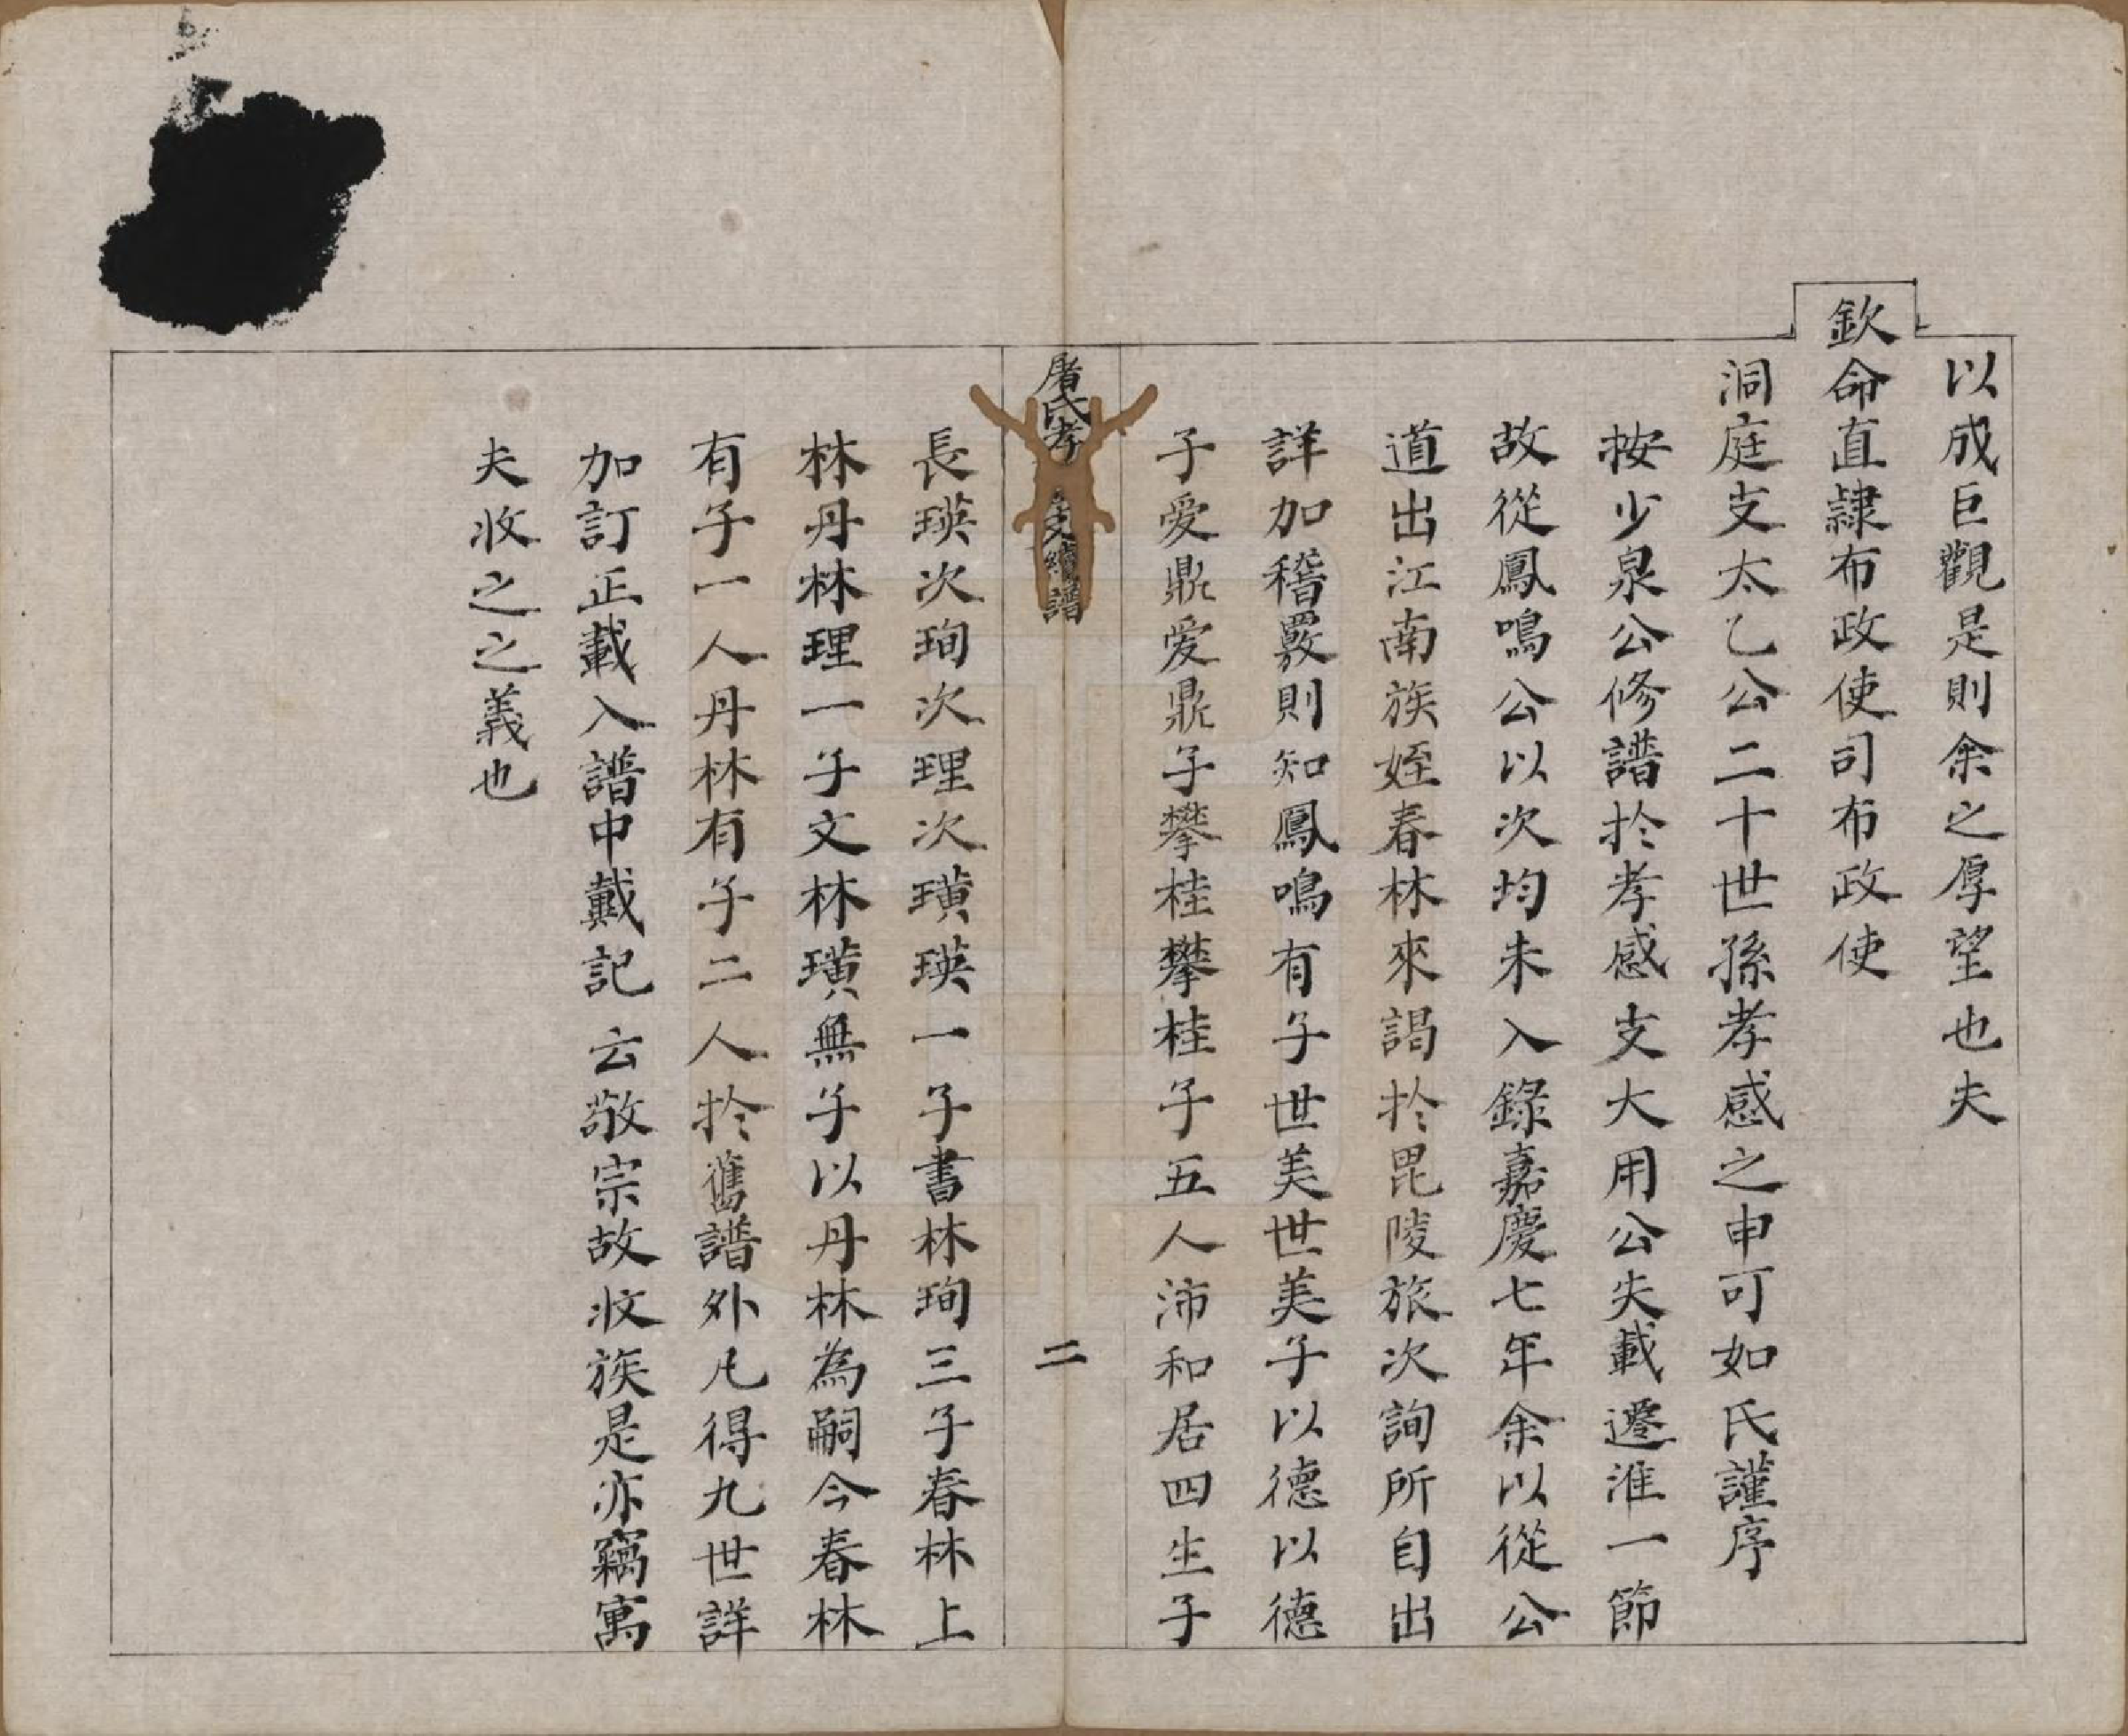 以成巨觀是則余之厚望也夫
欽命直隷布政使司布政使
洞庭支太乙公二十世孫孝感之申可如氏謹序
按少泉公修譜於孝感支大用公失載遷淮一節
故從鳳鳴公以次均未入錄嘉慶七年余以從公
道出江南族姪春林來謁於毘陵旅次詢所自出
詳加稽覈則知鳳鳴有子世美世美子以德以德
子愛鼎愛鼎子攀桂攀桂子五人沛和居四生子
屠氏孝支續譜
二
長瑛次珣次理次璜瑛一子書林珣三子春林上
林丹林理一子文林璜無子以丹林為嗣今春林
有子一人丹林有子二人於舊譜外凡得九世詳
加訂正載入譜中戴記云敬宗故收族是亦竊寓
夫收之之義也